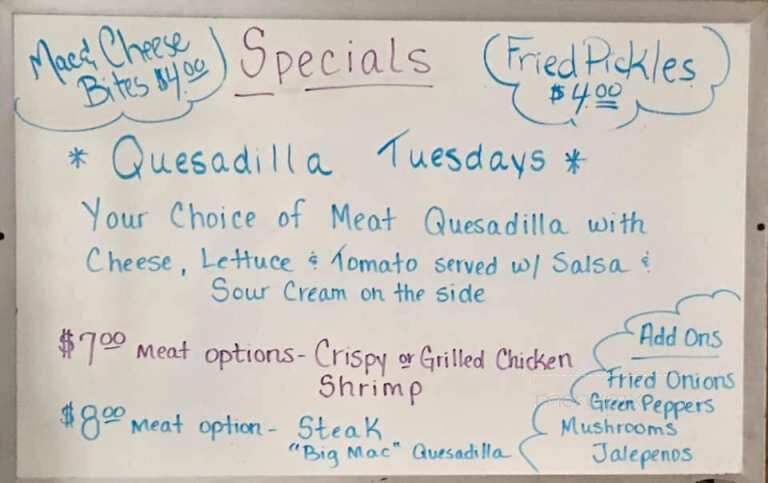 Mac & Cheese
Bites $4.00
Specials
Fried Pickles
$4.00
* Quesadilla Tuesdays *
Your Choice of Meat Quesadilla with
Cheese, Lettuce & Tomato served w/ Salsa &
Sour Cream on the side
$7.00 Meat options - Crispy or Grilled Chicken
Shrimp
$8.00 Meat option - Steak
"Big Mac" Quesadilla
Add Ons
Fried Onions
Green Peppers
Mushrooms
Jalepenos